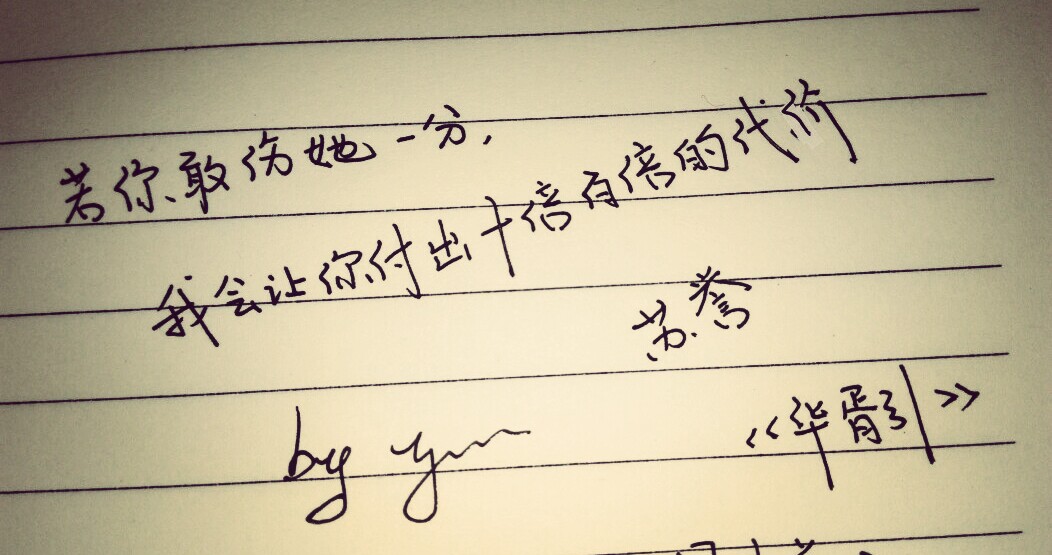 若你敢伤她一分,
我会让你付出十倍百倍的代价
苏誉
《华胥引》
by y